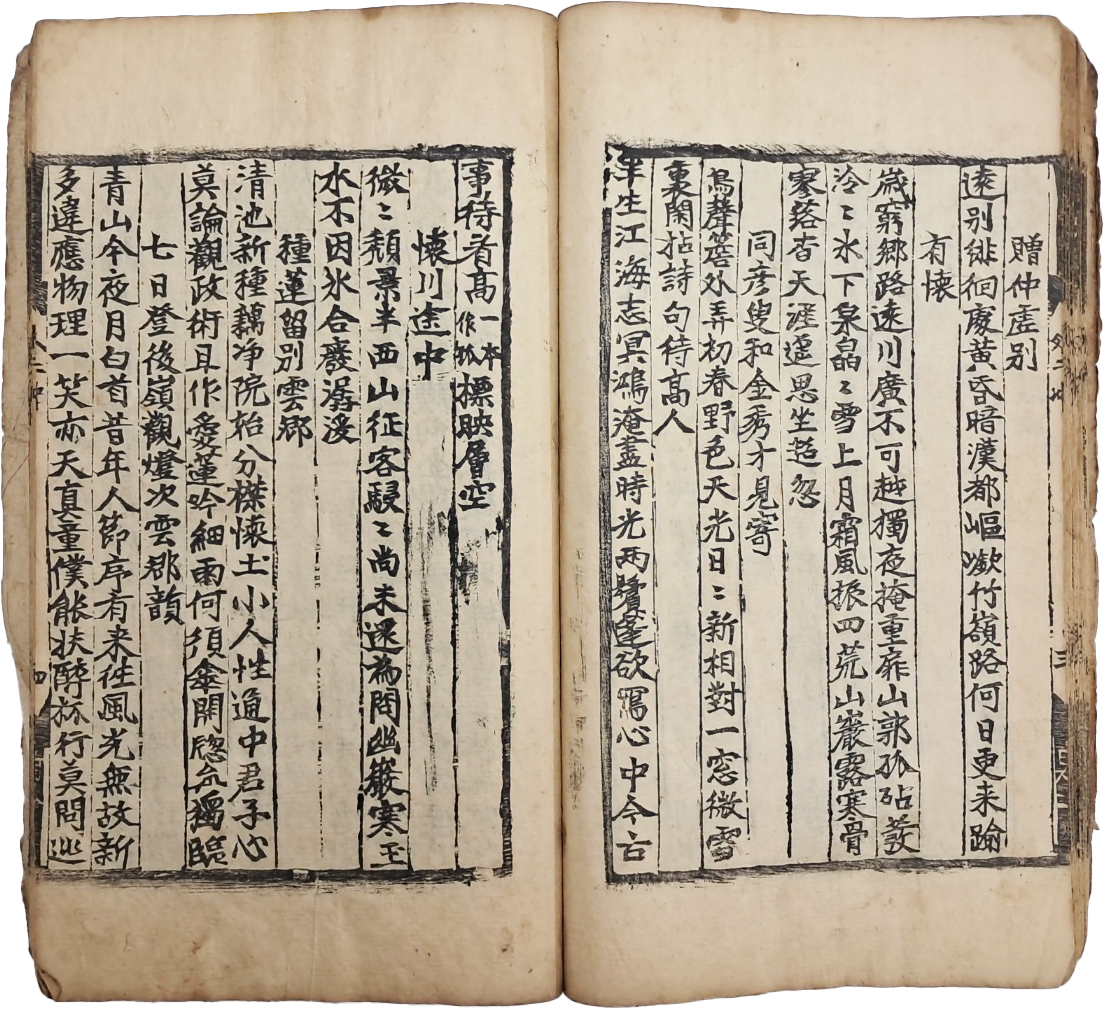 贈仲虛別
遠別徘徊處黃昏暗漢都嶇嶔竹嶺路何日更来踰
有懷
歲窮鄉路遠川廣不可越獨夜掩重扉山郭孤砧發
冷〻氷下泉皛〻雪上月霜風振四荒山巖露寒骨
寥落杳天涯遥思坐超忽
同彦叟和金秀才見寄
鳥聲簷外弄初春野色天光日〻新相對一窓微雪
裏閑拈詩句待高人
半生江海志冥鴻淹盡時光兩鬢蓬欲寫心中今古
事待看高一本作孤標映層空
懷川途中
微〻頹景半西山征客駸〻尚未還為問幽巖寒玉
水不因氷合廢潺湲
種蓮留別雲郡
清池新種藕净院始分襟懷土小人性通中君子心
莫論觀政術且作愛蓮吟細雨何須傘開窓獨臨
七日登後嶺觀燈次雲郡韻
青山今夜月白首昔年人節序看来徃風光無故新
多違應物理一笑亦天真童僕能扶醉旅行莫問